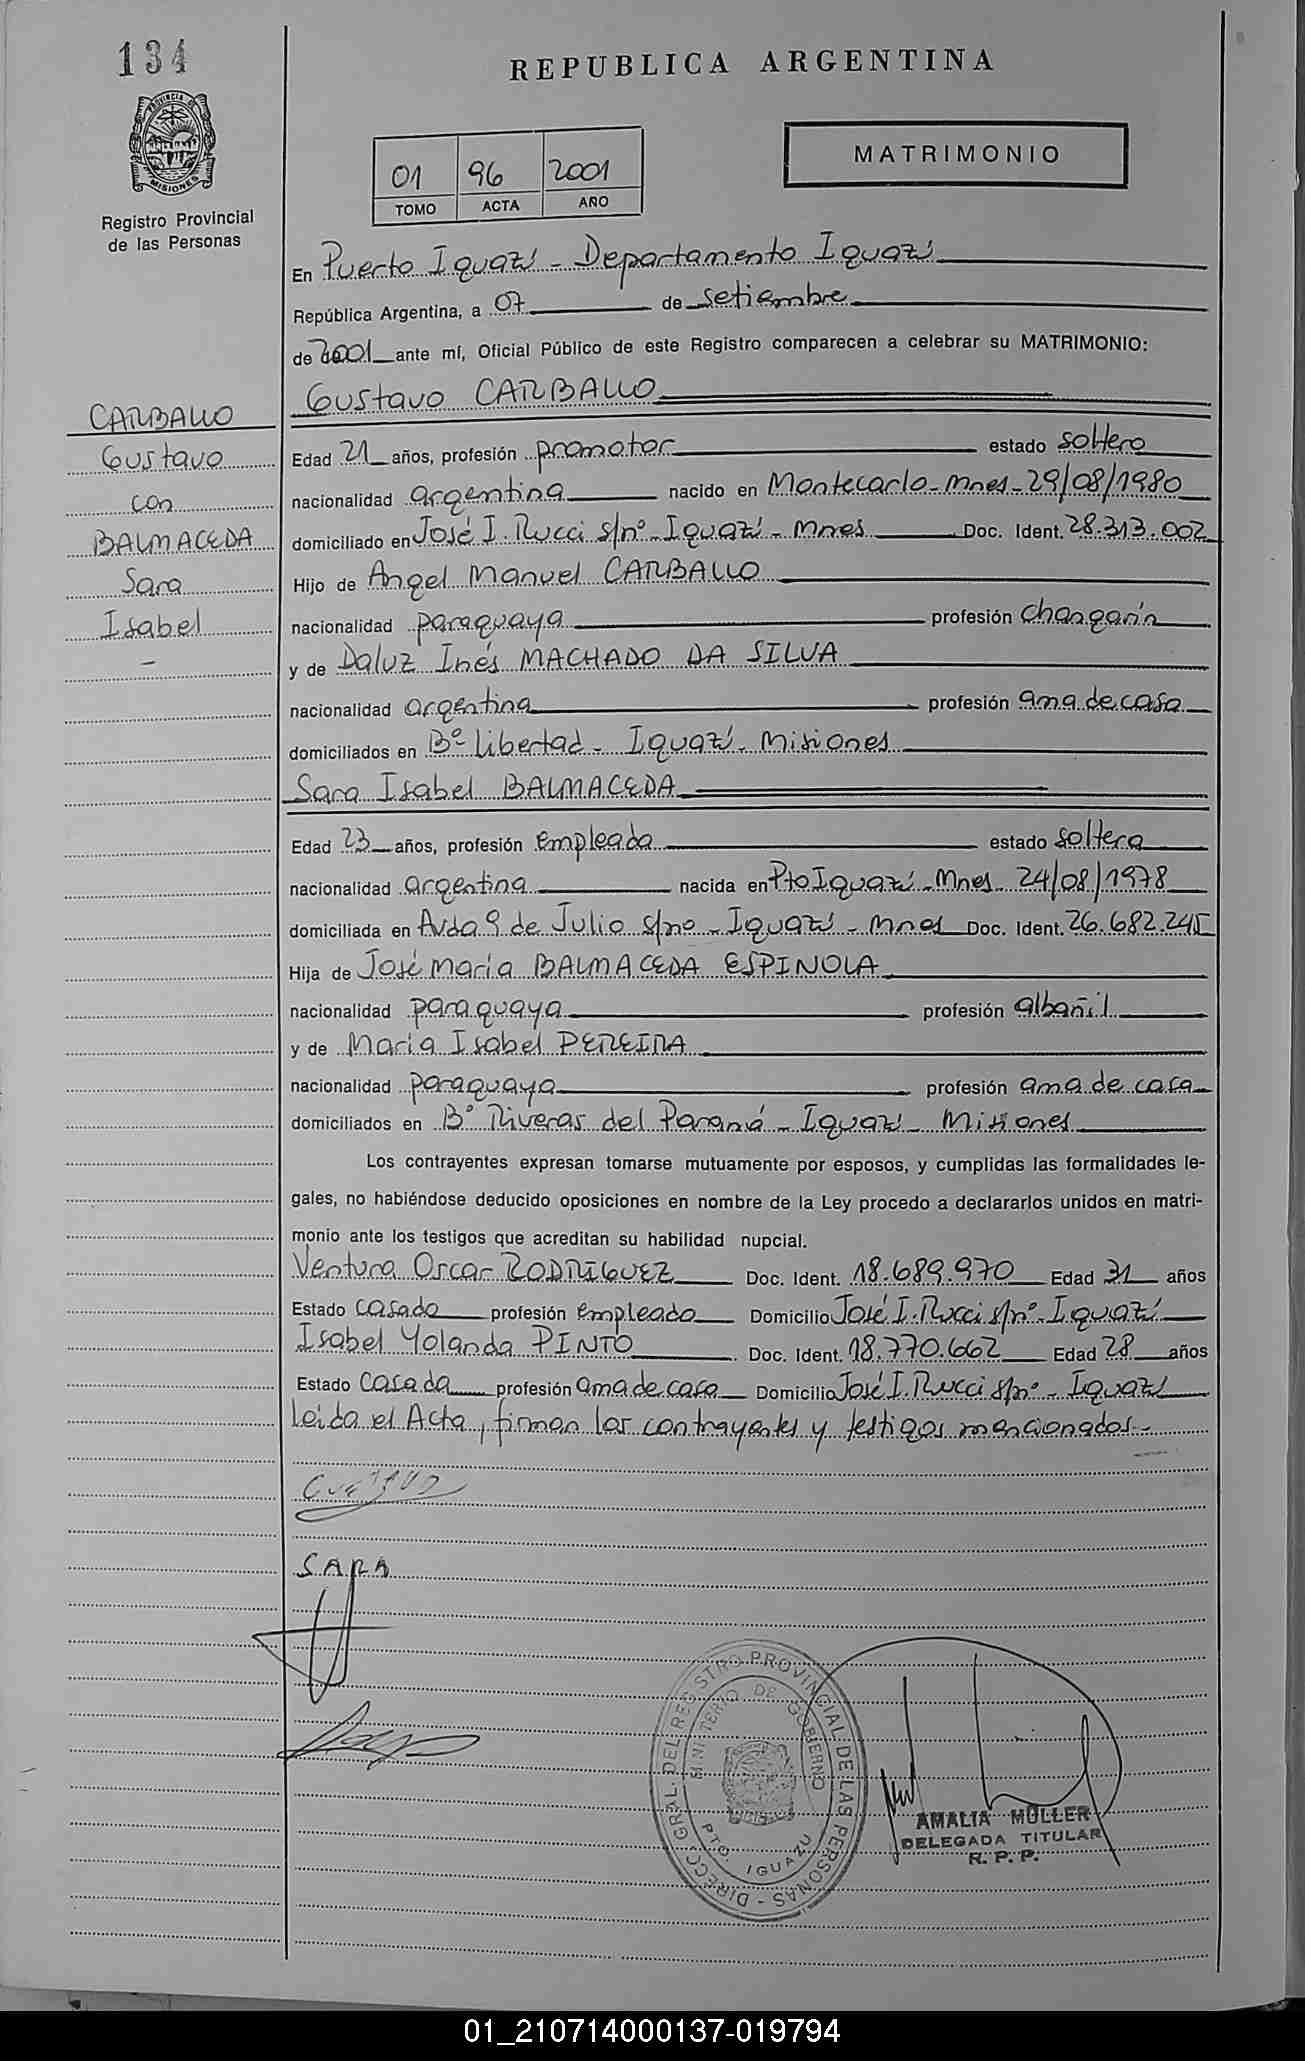 134
REPUBLICA ARGENTINA
PROVINCIA DE MISIONES
Registro Provincial
de las Personas
01 96 2001
TOMO ACTA AÑO
MATRIMONIO
En Puerto Iguazú - Departamento Iguazú
República Argentina, a 07 de setiembre
de 2001 ante mí, Oficial Público de este Registro comparecen a celebrar su MATRIMONIO:
CARBALLO
Gustavo
con
BALMACEDA
Sara
Isabel
-
Gustavo CARBALLO
Edad 21 años, profesión promotor estado soltero
nacionalidad argentina nacido en Montecarlo - Mnes - 29/08/1980
domiciliado en José I. Rucci s/nº - Iguazú - Mnes Doc. Ident. 28.313.002
Hijo de Angel Manuel CARBALLO
nacionalidad paraguaya profesión changarín
y de Daluz Inés MACHADO DA SILVA
nacionalidad argentina profesión ama de casa
domiciliados en Bº Libertad - Iguazú - Misiones
Sara Isabel BALMACEDA
Edad 23 años, profesión empleada estado soltera
nacionalidad argentina nacida en Pto Iguazú - Mnes - 24/08/1978
domiciliada en Avda 9 de Julio s/no - Iguazú - Mnes Doc. Ident. 26.682.245
Hija de José María BALMACEDA ESPINOLA
nacionalidad paraguaya profesión albañil
y de María Isabel PEREIRA
nacionalidad paraguaya profesión ama de casa
domiciliados en Bº Riveras del Paraná - Iguazú - Misiones
Los contrayentes expresan tomarse mutuamente por esposos, y cumplidas las formalidades le-
gales, no habiéndose deducido oposiciones en nombre de la Ley procedo a declararlos unidos en matri-
monio ante los testigos que acreditan su habilidad nupcial.
Ventura Oscar RODRIGUEZ Doc. Ident. 18.689.970 Edad 31 años
Estado casado profesión empleado Domicilio José I. Rucci s/nº - Iguazú
Isabel Yolanda PINTO Doc. Ident. 18.770.662 Edad 28 años
Estado Casada profesión ama de casa Domicilio José I. Rucci s/nº - Iguazú
Leída el Acta, firman los contrayentes y testigos mencionados.-
Gustavo
SARA
DIRECC. GRAL. DEL REGISTRO PROVINCIAL DE LAS PERSONAS -
MINISTERIO DE GOBIERNO
PTO. IGUAZU
AMALIA MÜLLER
DELEGADA TITULAR
R. P. P.
01_210714000137-019794